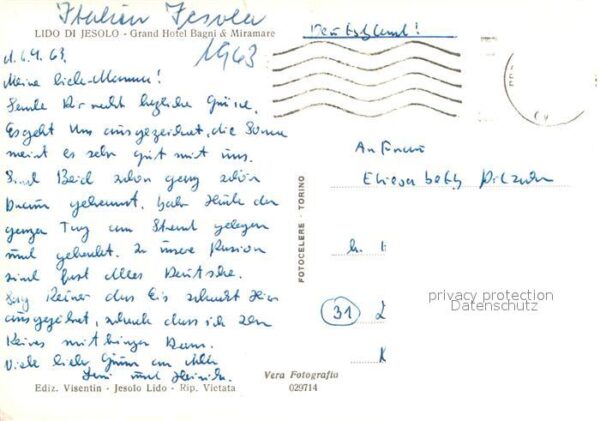 Italien Jesolo
LIDO DI JESOLO - Grand Hotel Bagni & Miramare
1963
Deutschland!
d. 6.9. 63.
Meine liebe Mamma!
Sende Dir recht herzliche Grüsse.
Es geht Uns ausgezeichnet, die Sonne
meint es sehr gut mit uns.
Sind Beid schon ganz schön
Braun gebrannt, hab Heute den
ganzen Tag am Strand gelegen
und gebadet. In unsere Pension
sind fast Alles Deutsche.
Sag Reiner das Eis schmeckt Hier
ausgezeichnet, schade dass ich
Reiner mit bringen kann.
Viele liebe Grüsse an Alle
und Heinrich.
An Frau
FOTOCELERE - TORINO
31
privacy protection
Datenschutz
Vera Fotografia
029714
Ediz. Visentin - Jesolo Lido - Rip. Vietata